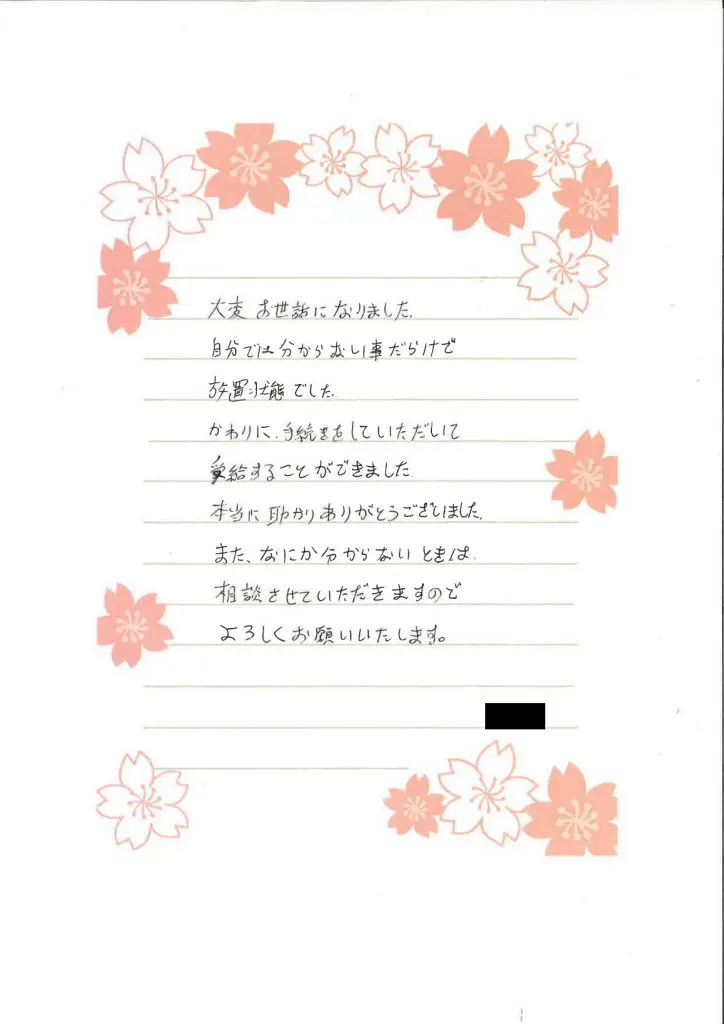 大変 お世話になりました.
自分では分からない事だらけで
放置状態でした.
かわりに、手続きをしていただいて
受給することができました
本当に助かりありがとうございました.
また、なにか分からないときは.
相談させていただきますので
よろしくお願いいたします。